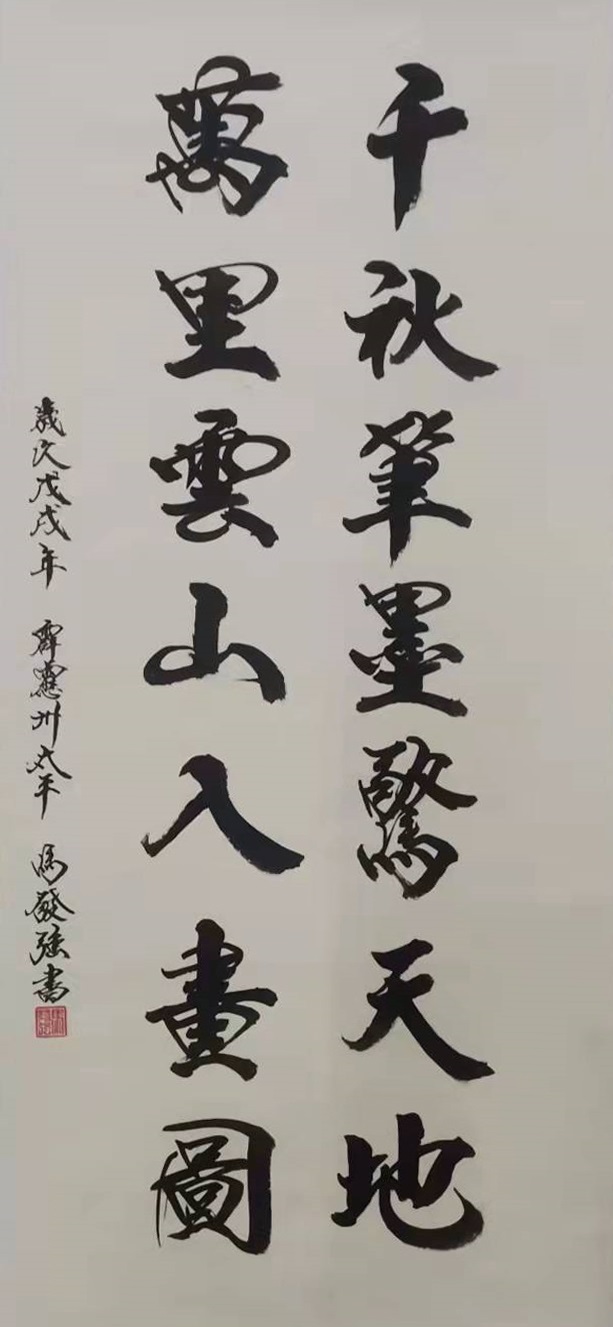 千秋筆墨驚天地
萬里雲山入畫圖
歲次戊戌年 霽靈州太平 馬發強書